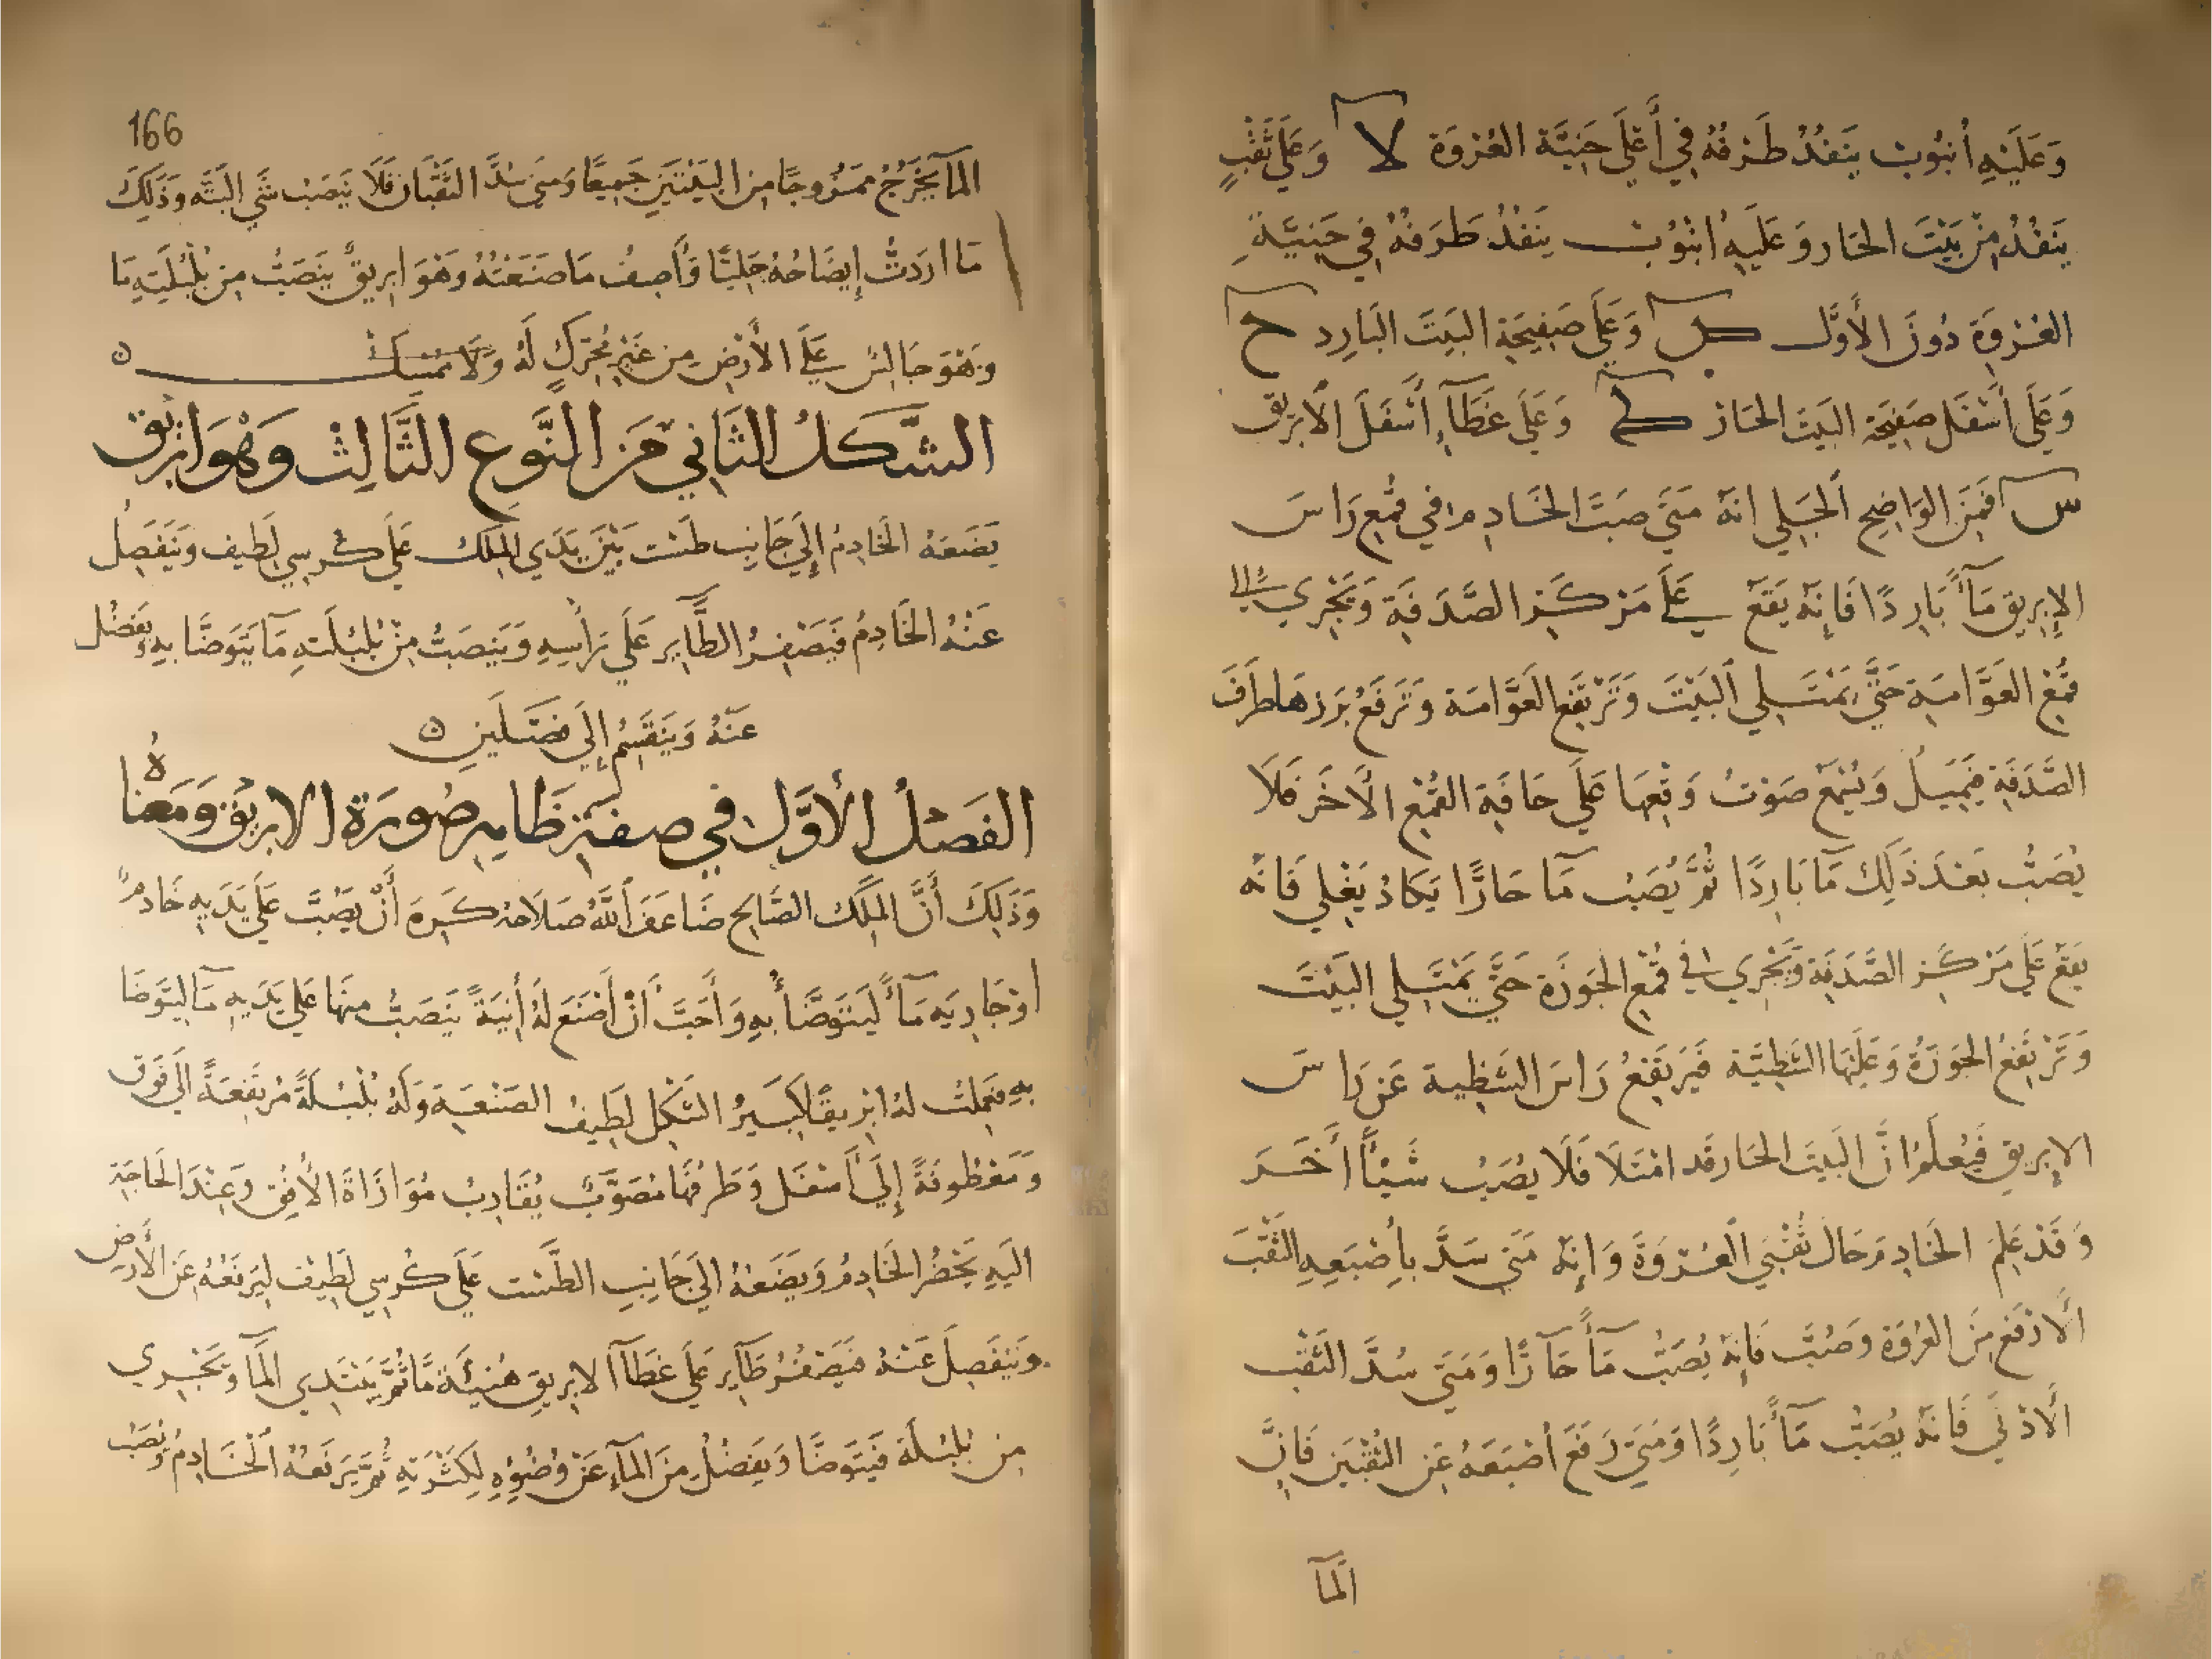 وَعَلَيْهِ أُنبُوبٌ يَنفُذُ طَرَفُهُ فِي أَعْلَى حَنِيَّة العُرْوَة لا وَعَلَى ثَقْبٍ
يَنفُذُ مِنْ بَيْتَ الحَار وَعَلَيهِ انبُوبٌ يَنفُذُ طَرَفُهُ فِي حَنِيَّةِ
العُرْوَة دُونَ الأَوَّل كل وَعَلَى صَفِيحَةِ البَيتَ البَارِد ح
وَعَلَى أَسْفَل صَفِيحَة البَيتَ الحَار وَعَلَى غِطَآءِ أَسْفَلَ الأبريق
س فَمِنَ الوَاضِحِ الجَلِي انَّهُ مَتَى صَبَّ الخَادِم في قُمع رَاسَ
الإبريق مَآءً بَارِدًا فَإِنَّهُ يَقَعُ عَلَى مَرْكَزِ الصَّدَفَةِ وَيَجْرِي إلى
قُمْعِ العَوَّامَةِ حَتَّى يَمْتَلِي البَيْتَ وَتَرْتَفِع العَوَّامَة وَتَرْفَعُ بِزَرِّهَا طَرَفَ
الصَّدَفَةِ فَيَمِيلُ وَيُسْمَعُ صَوْتُ وَقْعِهَا عَلَى حَافَةِ القُمْعِ الآخَر فَلَا
يُصَبُّ بَعْدَ ذَلِكَ مَآ بَارِدًا ثُمَّ يُصَبُّ مَآ حَارًّا يَكَادُ يَغْلِي فَانَّهُ
يَقَعُ عَلَى مَرْكَزِ الصَّدَفَة وَيَجْرِي في قُمْعِ الجَوْزَة حَتَّى يَمْتَلِي البَيْتَ
وَتَرْتَفِعُ الجَوْزَةُ وَعَلَيْهَا الشَظِيَّة فَيَرتَفِعُ رَاسَ الشَظِية عَن رَاسَ
الإبريق فَيُعلَمُ انَّ البَيتَ الحَار قَد امْتَلَا فَلَا يُصَبُّ شَيْئًا أَخَرَ
وَقَدْ عَلِمَ الخَادِمَ حَالَ ثُقْبَيِ العُرْوَةَ وَإِنَّهُ مَتَى سَدَّ بِأَصْبَعِهِ الثَّقْبَ
الأَرْفَع مِنَ العُرْوَة وَصَبَّ فَإِنَّهُ يُصَبُّ مَآءً حَآرًّا وَمَتَى سُدَّ الثَقْب
الأَدْنَى فَانَّهُ يُصَبُّ مَآءً بَارِدًا وَمَتَى رَفَعَ أصْبَعَهُ عَنِ الثُقْبَيْن فَانَّ
المآ
166
المآ يَخْرُجُ مَمْزُوجًا مِنَ البَيْتَيْنِ جَمِيعًا وَمَتى سُدَّ الثَّقْبَان فَلَا يَصُبُّ شَي البَتَّه وَذَلِكَ
مَا ارَدتُ إِيضَاحُهُ جَلِيًّا وَأَصِفُ مَا صَنَعْتُهُ وَهْوَ ابرِيقٌ يَنصَبُّ مِن بُلْبُلَتِهِ مَا
وَهْوَ جَالِسٌ عَلَى الأَرْضِ مِن غَيْرِ مُحَرِّكٍ لَهُ وَلَا مُمْسِك ه
الشَّكلُ الثَانِي مِنَ النَّوع الثَّالِث وَهْوَ ابْرِيق
يَضَعَهُ الخَادِمُ إِلَى جَانِبِ طَسْت بَيْنَ يَدَي المَلِك عَلَى كُرسِي لَطِيف وَيَنفَصِلُ
عَنْهُ الخَادِمُ فَيَصْفِرُ الطَّآيِر عَلَى رَأسِهِ وَيَنصَبُّ مِنْ بُلْبُلَتِهِ مَآ يَتَوَضَّا بِهِ وَيَفضُل
عَنْهُ وَيَنقَسِمُ إِلَى فَصْلَينِ ه
الفَصْلُ الأَوَّل فِي صفَةِ ظَاهِرِ صُورَةِ الابريق وَمَعْنَاهُ
وَذَلِكَ أَنَّ المَلِكَ الصَّالِح ضَاعَفَ اللَّهُ صَلَاحَهُ كَرِهَ أَنْ يَصُبَّ عَلَى يَدَيهِ خَادِمٌ
اوْ جَارِيَه مَآءً لَيتَوَضَّأ بِهِ وَأَحَبَّ أَنْ أَصْنَعَ لَهُ أَنِيَةً يَنصَبُّ مِنهَا عَلَى يَدَيهِ مَآ لِيَتَوَضَا
بِهِ فَعَمِلتُ لَهُ ابْرِيقًا كَبِيرُ الشَكِل لَطِيفُ الصَنْعَةِ وَلَهُ بُلْبُلَةٌ مُرْتَفِعَةً الَى فَوْق
وَمَعْطُوفَةً إِلَى أَسْفَل وَطَرفُهَا مُصَوَّبٌ يُقَارِبُ مُوَازَاةَ الأُفُق وَعِنْدَ الحَاجَةِ
الَيهِ يَحْضُر الخَادِمُ وَيَضَعَهُ الَى جَانِبِ الطَّسْت عَلَى كُرسِي لَطِيْف لِيَرْفَعُهُ عَنِ الأَرْضِ
وَيَنْفَصِلَ عَنْهُ فَيَصْفُرُ طَآيِر عَلَى غطَآ الابرِيقِ هُنيئَةً مَّا ثُمَّ يَبْتَدِي المَآ وَيَجْرِي
مِن بُلْبُلَه فَيَتَوَضَّا وَيَفضُلُ مِنَ المَآءِ عَنْ وُضُوْءِهِ لِكَثْرَتِهِ ثُمَّ يَرفَعُهُ الْخَادِمُ وَيَصُبُّ